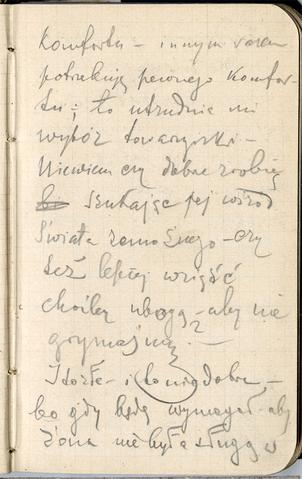 Komfortu – innym razem
potrzebuję pewnego Komfor-
tu; to utrudnia mi
wybór towarzyszki –
Niewiem czy dobrze zrobię
szukając jej wśród
świata zamożnego – czy
też lepiej wziąść
choćby ubogą – aby nie
grymaśną? –
I to źle – i to niedobrze, –
bo gdy będę wymagał aby
żona nie była sługą